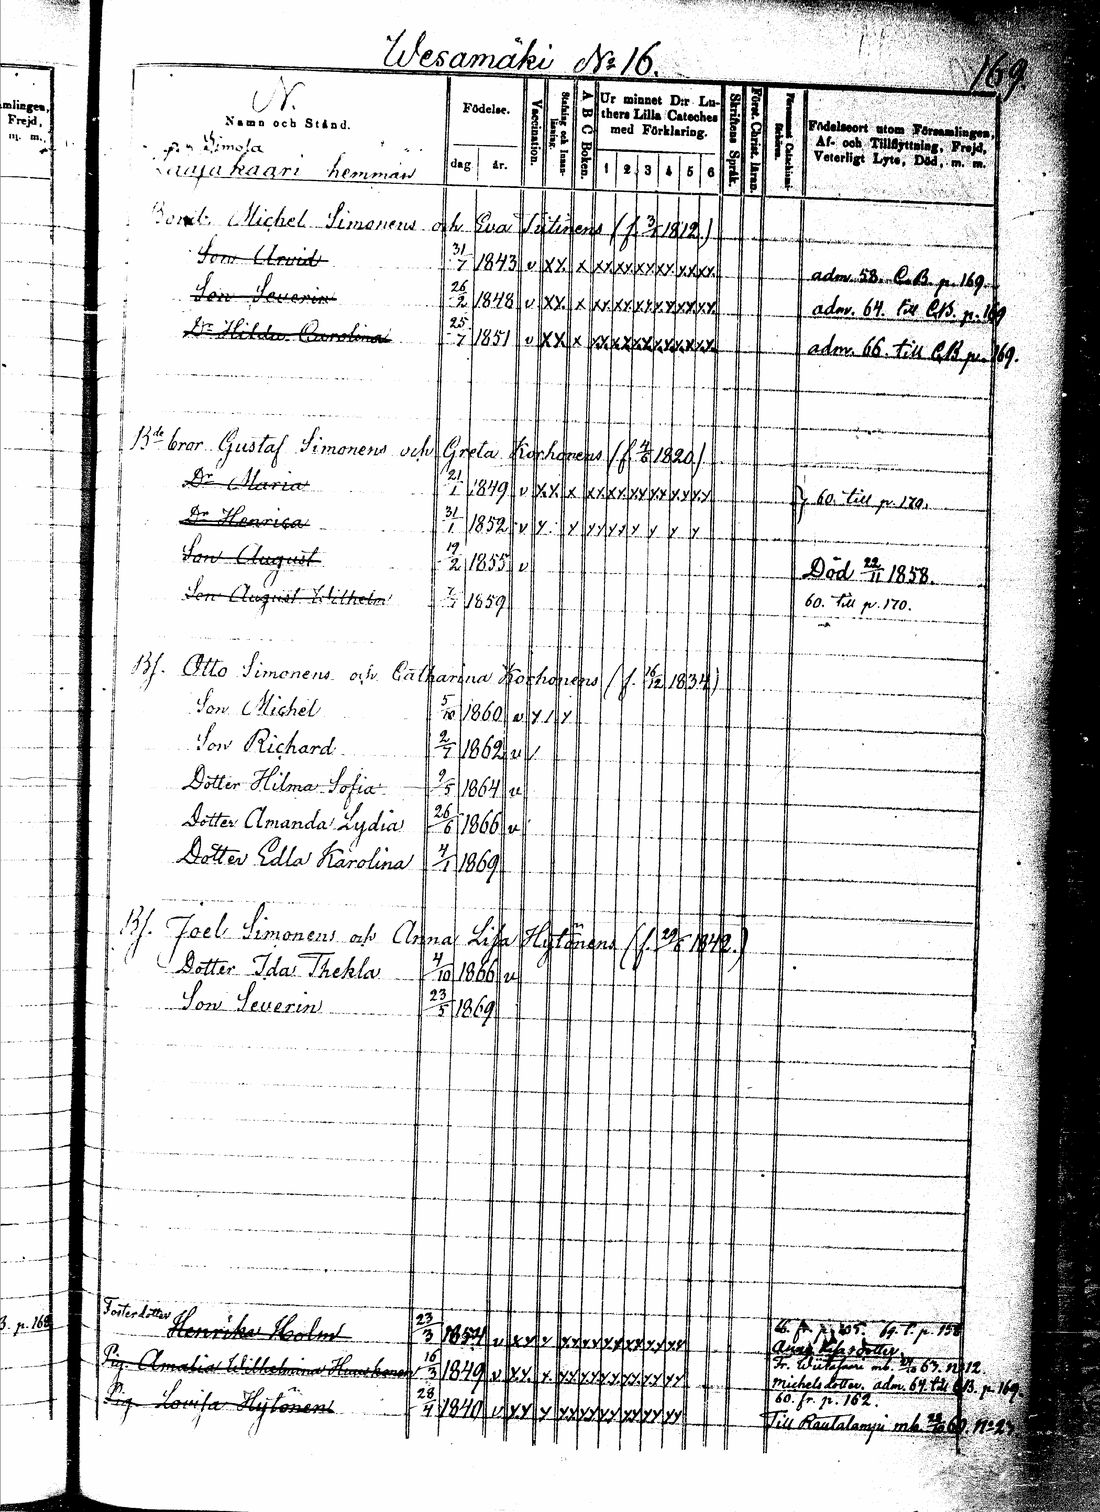 Wesamäki No 16.
169.
mlingen,
Frejd,
m. m.
N.
Namn och Stånd.
Födelse.
dag
år.
Vaccination.
A B C Boken.
Ur minnet D:r Lu-
thers Lilla Cateches
med Förklaring.
1 2 3 4 5 6
Skriftens Språk.
Först. Christ. läran.
Födelseort utom Församlingen,
Af- och Tillflyttning, Frejd,
Veterligt Lyte, Död, m. m.
Simola
Laajakaari hemman
Bond. Michel Simonens och Eva Tutinens (f. 3/1 1812.)
Son Arvid 31/7 1843 v XX x xx xx xx xx xx xx adm. 58. C.B. p. 169.
Son Severin 26/2 1848 v XX x xx xx xx xx xx xx adm. 64. till C.B. p. 169
Dr Hilda Carolina 25/7 1851 v XX x xx xx xx xx xx xx adm. 66. till C.B p. 169.
Bde bror Gustaf Simonens och Greta Korhonens (f. 4/6 1820)
Dr Maria 21/1 1849 v xx x xx xx xx xx xx xx 60. till p. 170.
Dr Henrica 31/1 1852 v
Son August 19/2 1855 v Död 22/11 1858.
Son August Wilhelm 1859 60. till p. 170.
Bf. Otto Simonens och Catharina Korhonens (f. 16/12 1834)
Son Michel 5/10 1860 v
Son Richard 2/7 1862 v
Dotter Hilma Sofia 9/5 1864 v
Dotter Amanda Lydia 26/6 1866 v
Dotter Edla Karolina 4/1 1869
Bf. Joel Simonens och Anna Lisa Hytönens (f. 29/6 1842.)
Dotter Ida Thekla 4/10 1866 v
Son Severin 23/5 1869
Fosterdotter
Henrika Holm 23/3 1854 v 66. fr. p. 205. 69. t. p. 158
Anna Lisasdotter.
3. p. 168
Pig. Amalia Wilhelmina 16/3 1849 v Fr. Wiitasaari mb. 63. No 12.
Michelsdotter. adm. 64. till C.B. p. 169.
Pig. Lovisa Hytönen 28/4 1840 v 60. fr. p. 162.
Till Rautalampi mb. 60. No 27